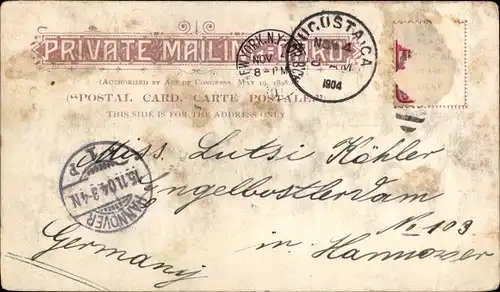 PRIVATE MAILING CARD
(AUTHORIZED BY ACT OF CONGRESS, MAY 19, 1898.)
("POSTAL CARD, CARTE POSTALE")
THIS SIDE IS FOR THE ADDRESS ONLY
NEW YORK, N.Y.
NOV
8-PM
AUGUSTA, GA
NOV
AM
1904
HANNOVER
15.11.04.3-4N.
Miss. Lutsi Köhler
Engelbostler Dam
No 103
in Hannover
Germany